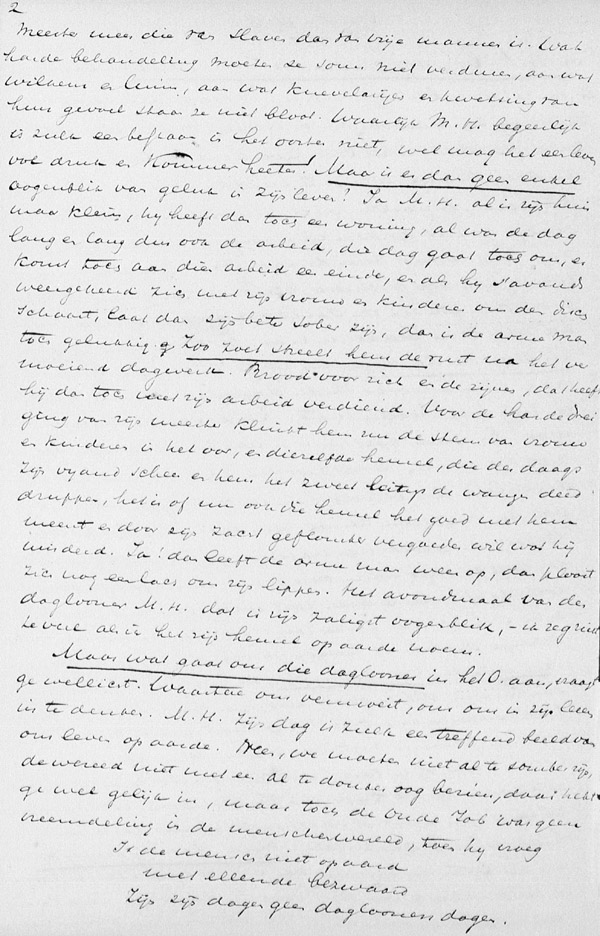 2
Meester meer die van slaven dan van vrije mannen is. Wat
harde behandeling moeten ze soms niet verduren, aan wat
willekeur en luim, aan wat knevelarijen en kwetsing van
hun gevoel staan ze niet bloot. Waarlijk M.H. begeerlijk
is zulk een bestaan in het oosten niet, wel mag het een leven
vol druk en kommer heeten! Maar is er dan geen enkel
oogenblik van geluk in zijn leven? Ja M.H. al is zijn huis
maar klein, hij heeft dan toch een woning, al was de dag
lang en lang dus ook de arbeid, die dag gaat toch om, er
komt toch aan dien arbeid een einde, en als hij 's avonds
weergekeerd zich met zijn vrouw en kinderen om den disch
schaart, laat dan zijn bete sober zijn, dan is de arme man
toch gelukkig. Zoo zoet streelt hem de rust na het ver
moeiend dagwerk. Brood voor zich en de zijnen, dat heeft
hij dan toch met zijn arbeid verdiend. Voor de harde drei
ging van zijn meester klinkt hem nu de stem van vrouw
en kinderen in het oor, en diezelfde hemel, die des daags
zijn vyand scheen en hem het zweet langs de wangen deed
druppen, het is of nu ook die hemel het goed met hem
meent en door zijn zacht geflonker vergoeden wil wat hij
misdeed. Ja! dan leeft de arme man weer op, dan plooit
zich nog een lach om zijn lippen. Het avondmaal van den
daglooner M.H. dat is zijn zaligst oogenblik, – ik zeg niet
te veel als ik het zijn hemel op aarde noem.
Maar wat gaat ons die daglooner in het O. aan, vraagt
ge wellicht. Waartoe ons vermoeit, om ons in zijn leven
in te denken. M.H. Zijn dag is zulk een treffend beeld van
ons leven op aarde. Neen, we moeten niet al te somber zijn,
de wereld niet met een al te donker oog bezien, daar hebt
ge wel gelijk in, maar toch de oude Job was geen
vreemdeling in de menschenwereld, toen hij vroeg
Is de mensch niet op aard
met ellende bezwaard
Zijn zijn dagen geen daglooners dagen.